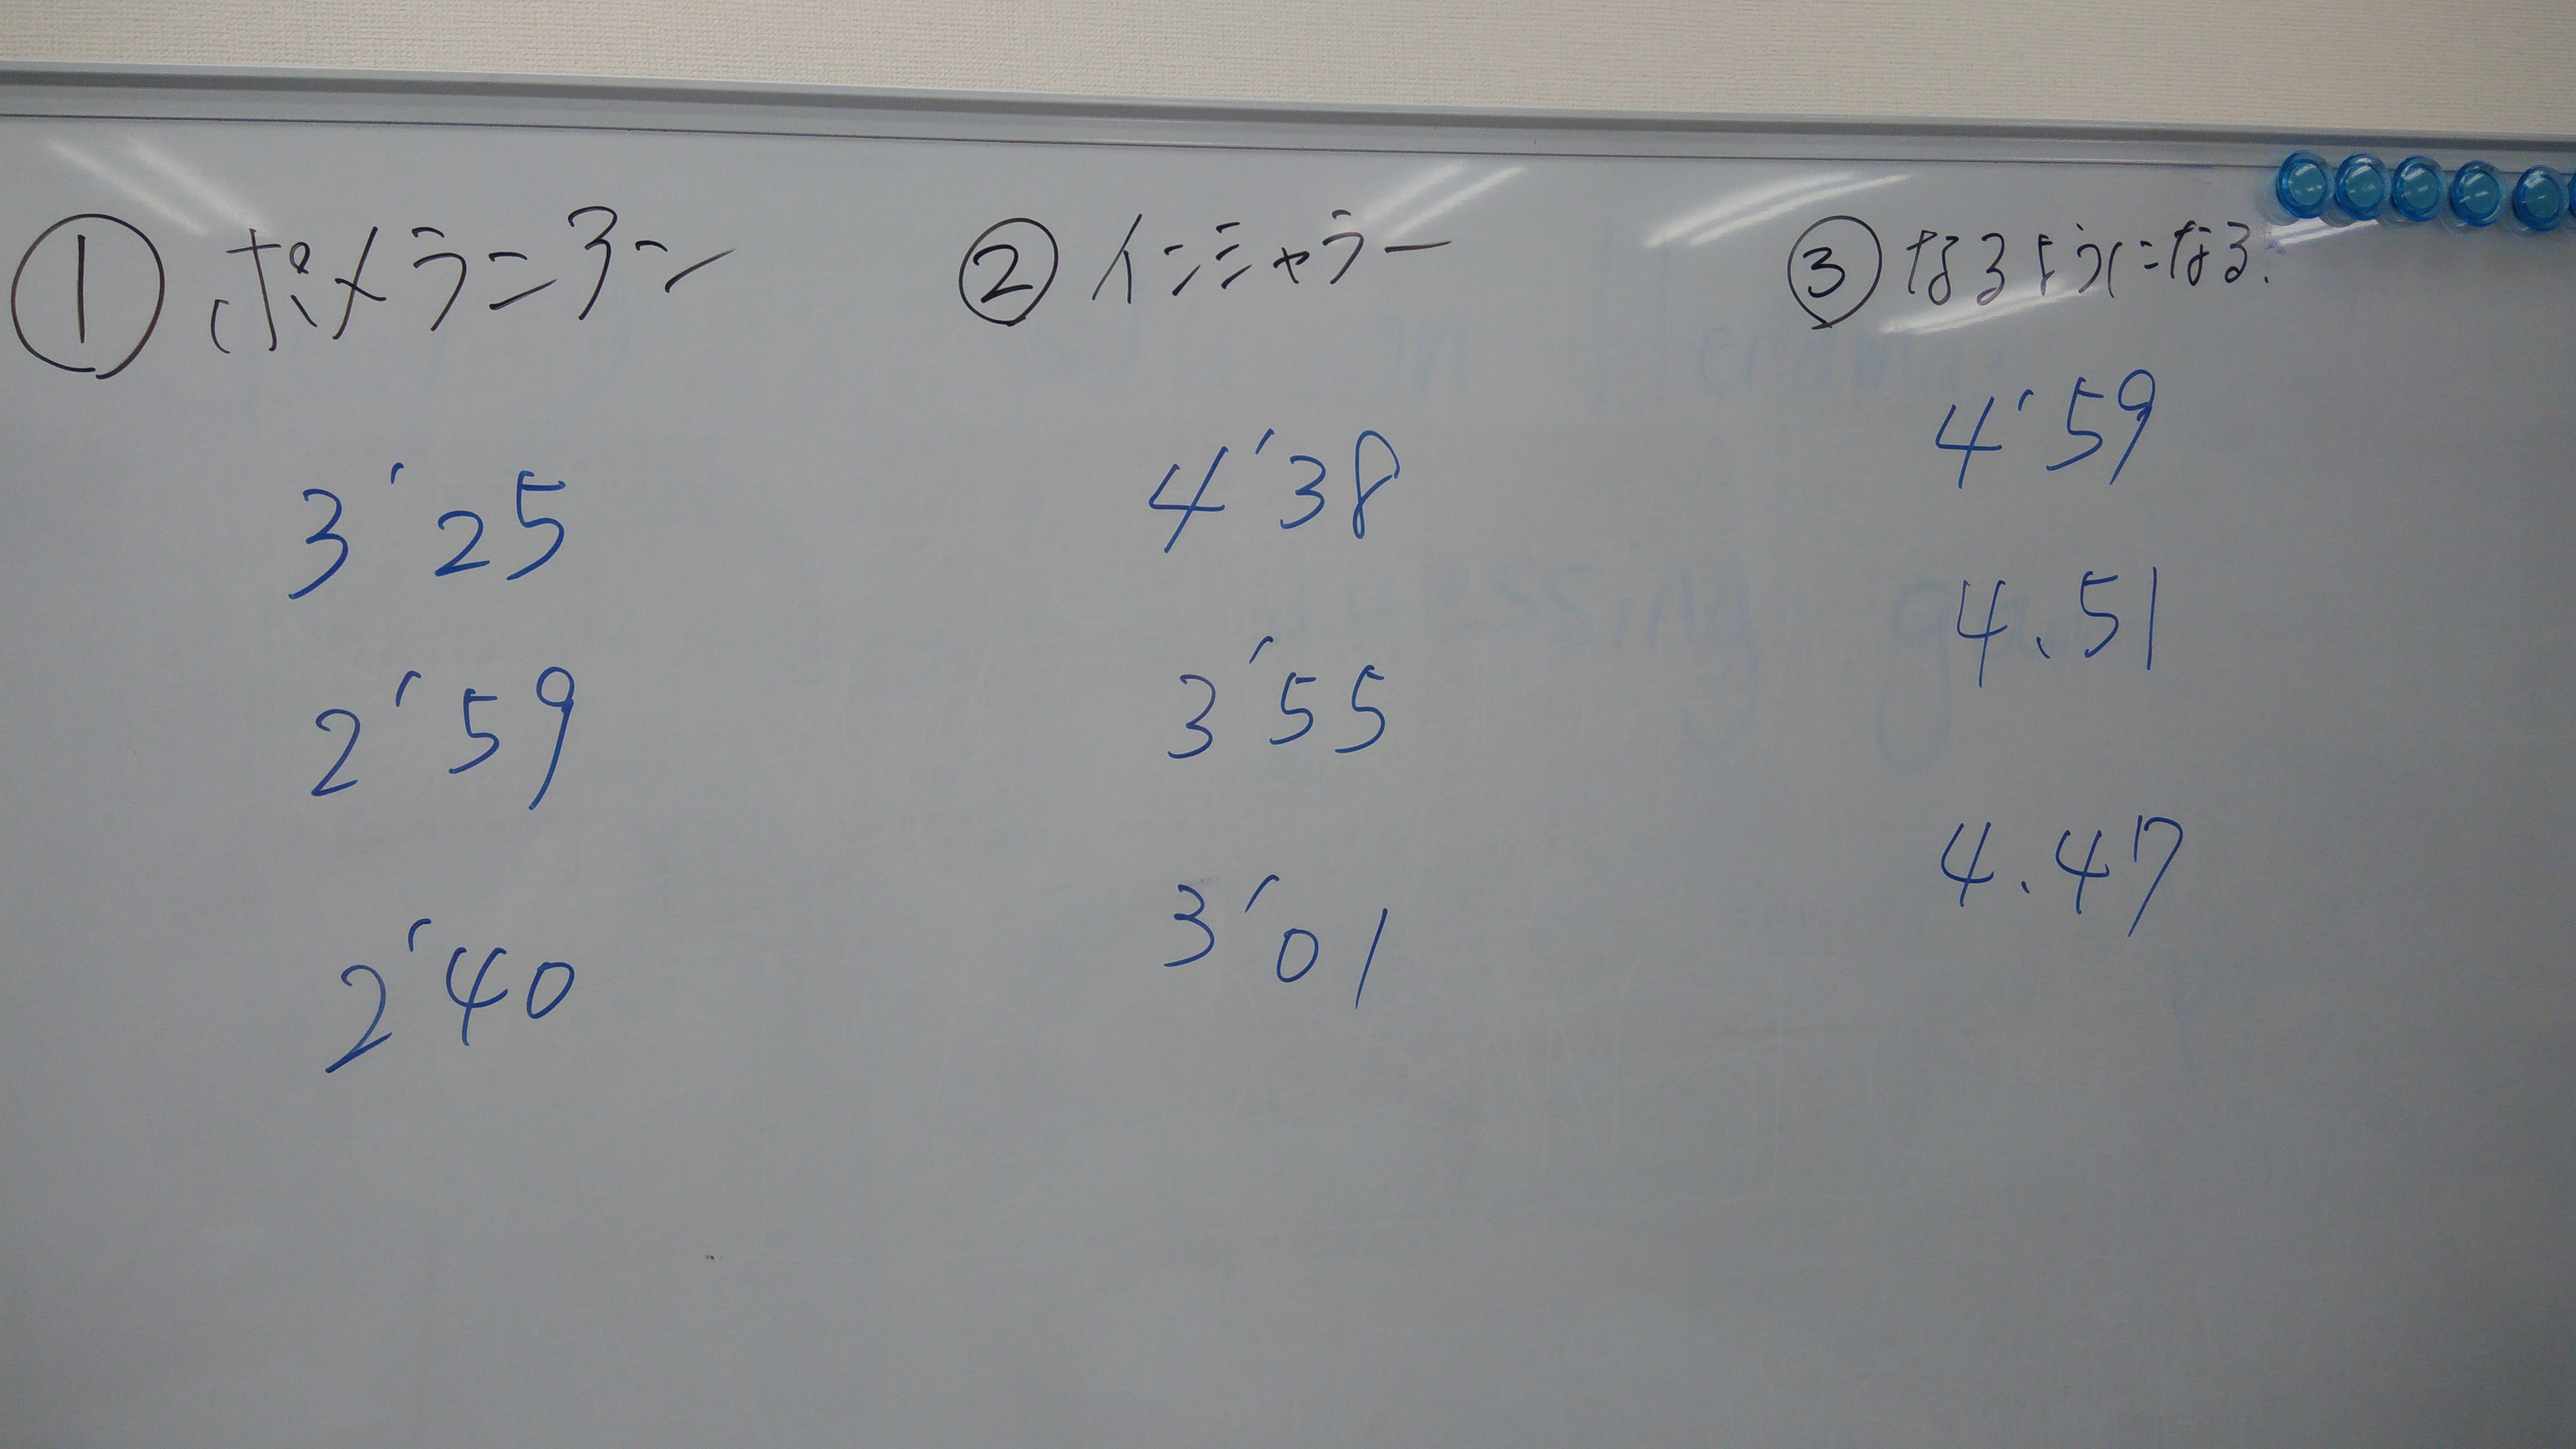 ① ポメラニアン
3'25
2'59
2'40
② インシャラー
4'38
3'55
3'01
③ なるようになる.
4'59
4.51
4.47